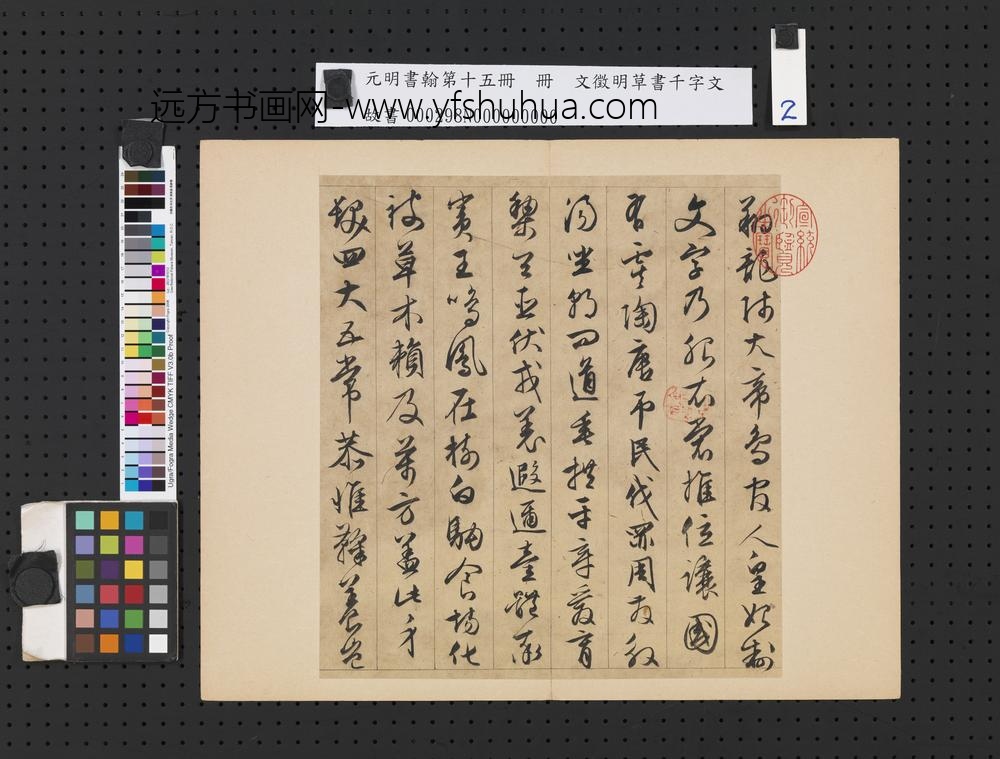 元明書翰第十五冊　冊　文徵明草書千字文
故書 000298N000000000
远方书画网-www.yfshuhua.com
2
翔龍師火帝鳥官人皇始制
文字乃服衣裳推位讓國
有虞陶唐弔民伐罪周發殷
湯坐朝問道垂拱平章愛育
黎首臣伏戎羌遐邇壹體率
賓王鳴鳳在樹白駒食場化
被草木賴及萬方蓋此身
髮四大五常恭惟鞠養豈
宣統御覽之寶
Ugra/Fogra Media Wedge CMYK TIFF V3.0b Proof